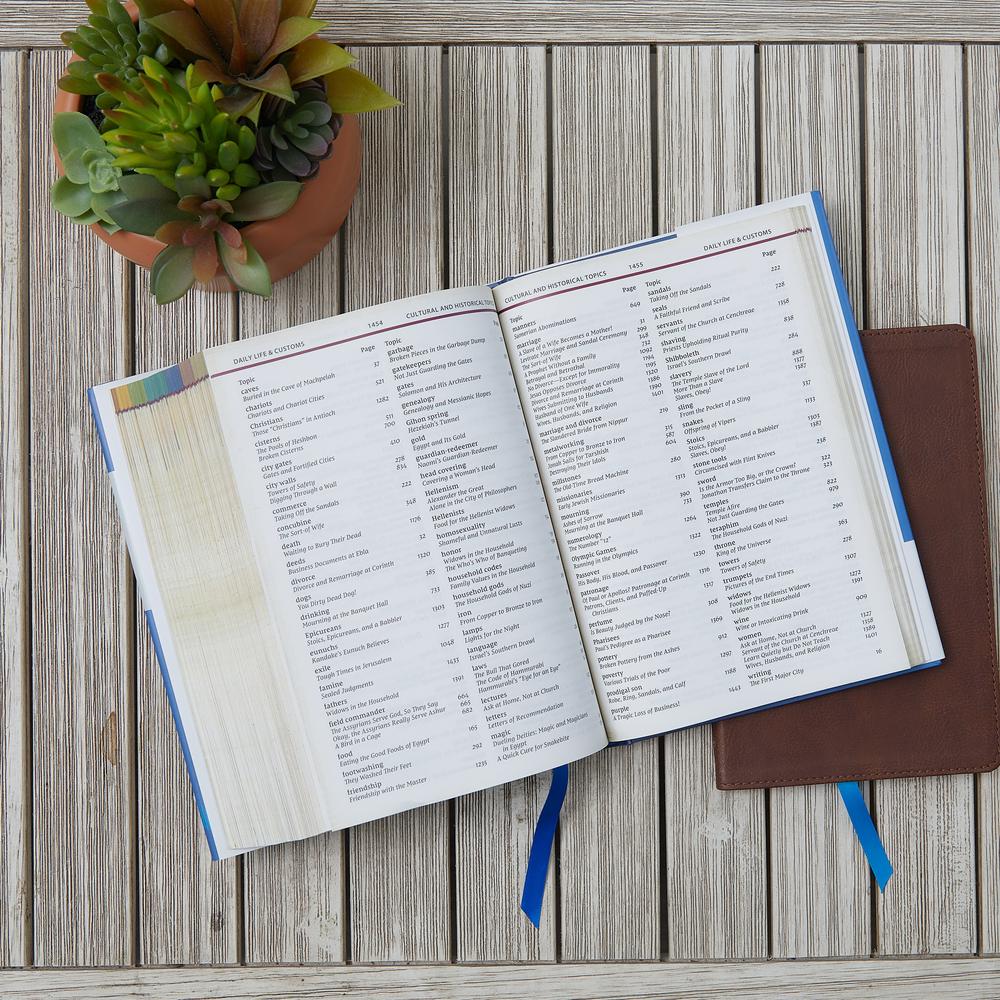 DAILY LIFE & CUSTOMS 1454 CULTURAL AND HISTORICAL TOPICS
Topic Page
caves
Buried in the Cave of Machpelah 37
chariots
Chariots and Chariot Cities 521
Christians
Those "Christians" in Antioch 1282
cisterns
The Pools of Heshbon 511
Broken Cisterns 700
city gates
Gates and Fortified Cities 410
city walls
Towers of Safety 278
Digging Through a Wall 834
commerce
Taking Off the Sandals 222
concubine
The Sort-of Wife 348
death
Waiting to Bury Their Dead 1176
deeds
Business Documents at Ebla 32
divorce
Divorce and Remarriage at Corinth 1120
dogs
You Dirty Dead Dog! 385
drinking
Mourning at the Banquet Hall 733
Epicureans
Stoics, Epicureans, and a Babbler 1303
eunuchs
Kandake's Eunuch Believes 1277
exile
Tough Times in Jerusalem 1048
famine
Sealed Judgments 1433
fathers
Widows in the Household 1391
field commander
The Assyrians Serve God, So They Say 664
Okay, the Assyrians Really Serve Ashur 665
A Bird in a Cage 682
food
Eating the Good Foods of Egypt 165
footwashing
They Washed Their Feet 292
friendship
Friendship with the Master 1235
Topic
garbage
Broken Pieces in the Garbage Dump
gatekeepers
Not Just Guarding the Gates
gates
Solomon and His Architecture
genealogy
Genealogy and Messianic Hopes
Gihon spring
Hezekiah's Tunnel
gold
Egypt and Its Gold
guardian-redeemer
Naomi's Guardian-Redeemer
head covering
Covering a Woman's Head
Hellenism
Alexander the Great
Alone in the City of Philosophers
Hellenists
Food for the Hellenist Widows
homosexuality
Shameful and Unnatural Lusts
honor
Widows in the Household
The Who's Who of Banqueting
household codes
Family Values in the Household
household gods
The Household Gods of Nuzi
iron
From Copper to Bronze to Iron
lamps
Lights for the Night
language
Israel's Southern Drawl
laws
The Bull That Gored
The Code of Hammurabi
Hammurabi's "Eye for an Eye"
lectures
Ask at Home, Not at Church
letters
Letters of Recommendation
magic
Dueling Deities: Magic and Magicians
in Egypt
A Quick Cure for Snakebite
CULTURAL AND HISTORICAL TOPICS 1455 DAILY LIFE & CUSTOMS
Topic Page
manners
Sumerian Abominations 649
marriage
A Slave of a Wife Becomes a Mother! 31
Levirate Marriage and Sandal Ceremony 299
The Sort-of Wife 348
A Prophet Without a Family 732
Betrayed and Betrothal 1092
No Divorce—Except for Immorality 1194
Jesus Opposes Divorce 1195
Divorce and Remarriage at Corinth 1320
Wives Submitting to Husbands 1386
Husband of One Wife 1390
Wives, Husbands, and Religion 1401
marriage and divorce
The Slandered Bride from Nippur 219
metalworking
From Copper to Bronze to Iron 315
Jonah Sails for Tarshish 587
Destroying Their Idols 604
millstones
The Old-Time Bread Machine 280
missionaries
Early Jewish Missionaries 1313
mourning
Ashes of Sorrow 390
Mourning at the Banquet Hall 733
numerology
The Number "12" 1264
Olympic Games
Running in the Olympics 1322
Passover
His Body, His Blood, and Passover 1230
patronage
Of Paul or Apollos? Patronage at Corinth 1316
Patrons, Clients, and Puffed-Up 1317
Christians
perfume
Is Beauty Judged by the Nose? 308
Pharisees
Paul's Pedigree as a Pharisee 1369
pottery
Broken Pottery from the Ashes 912
poverty
Various Trials of the Poor 1297
prodigal son
Robe, Ring, Sandals, and Calf 1188
purple
A Tragic Loss of Business! 1443
Topic Page
sandals
Taking Off the Sandals 222
seals
A Faithful Friend and Scribe 728
servants
Servant of the Church at Cenchreae 1358
shaving
Priests Upholding Ritual Purity 838
Shibboleth
Israel's Southern Drawl 284
slavery
The Temple Slave of the Lord 888
More Than a Slave 1377
Slaves, Obey! 1387
sling
From the Pocket of a Sling 337
snakes
Offspring of Vipers 1133
Stoics
Stoics, Epicureans, and a Babbler 1303
Slaves, Obey! 1387
stone tools
Circumcised with Flint Knives 238
sword
Is the Armor Too Big, or the Crown? 322
Jonathan Transfers Claim to the Throne 323
temples
Temple Afire 822
Not Just Guarding the Gates 979
teraphim
The Household Gods of Nuzi
throne
King of the Universe
towers
Towers of Safety 278
trumpets
Pictures of the End Times 1307
widows
Food for the Hellenist Widows 1272
Widows in the Household 1391
wine
Wine or Intoxicating Drink 909
women
Ask at Home, Not at Church 1127
Servant of the Church at Cenchreae 1358
Learn Quietly but Do Not Teach 1389
Wives, Husbands, and Religion 1401
writing
The First Major City 16